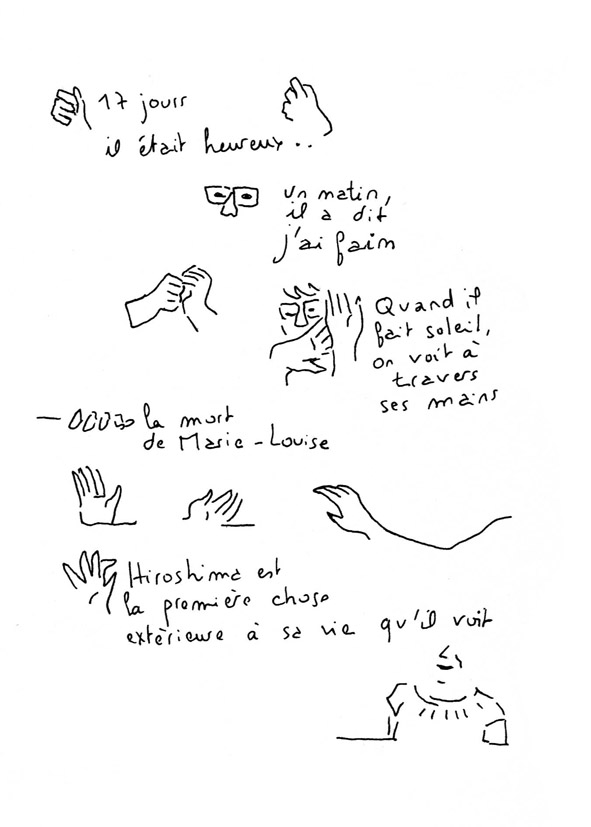 17 jours
il était heureux..
un matin,
il a dit
j'ai faim
Quand il
fait soleil,
on voit à
travers
ses mains
la mort
de Marie-Louise
Hiroshima est
la première chose
extérieure à sa vie qu'il voit